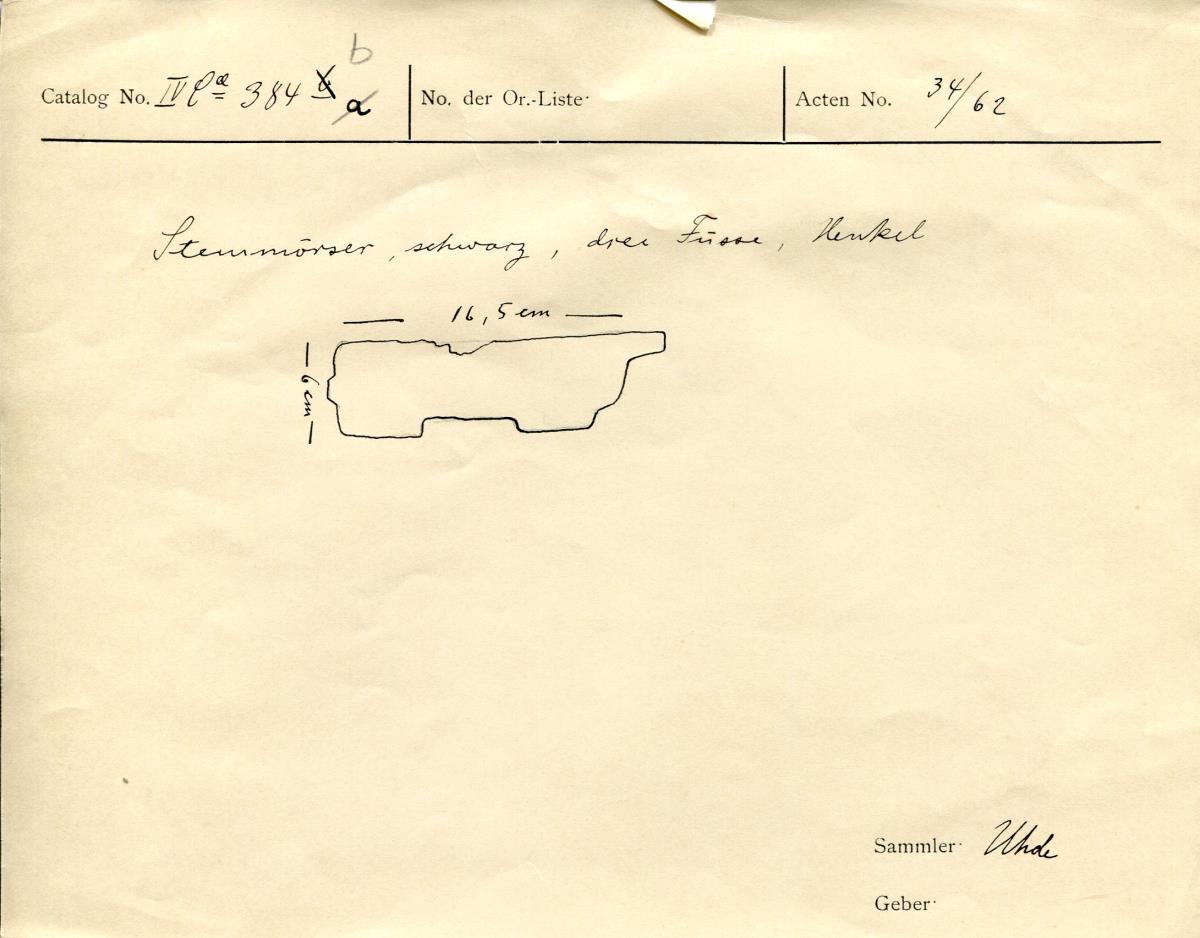 b
Catalog No. IV Ca 384 a
No. der Or.-Liste
Acten No. 34/62
Steinmörser, schwarz, drei Füsse, Henkel
16,5 cm
6 cm
Sammler Uhde
Geber